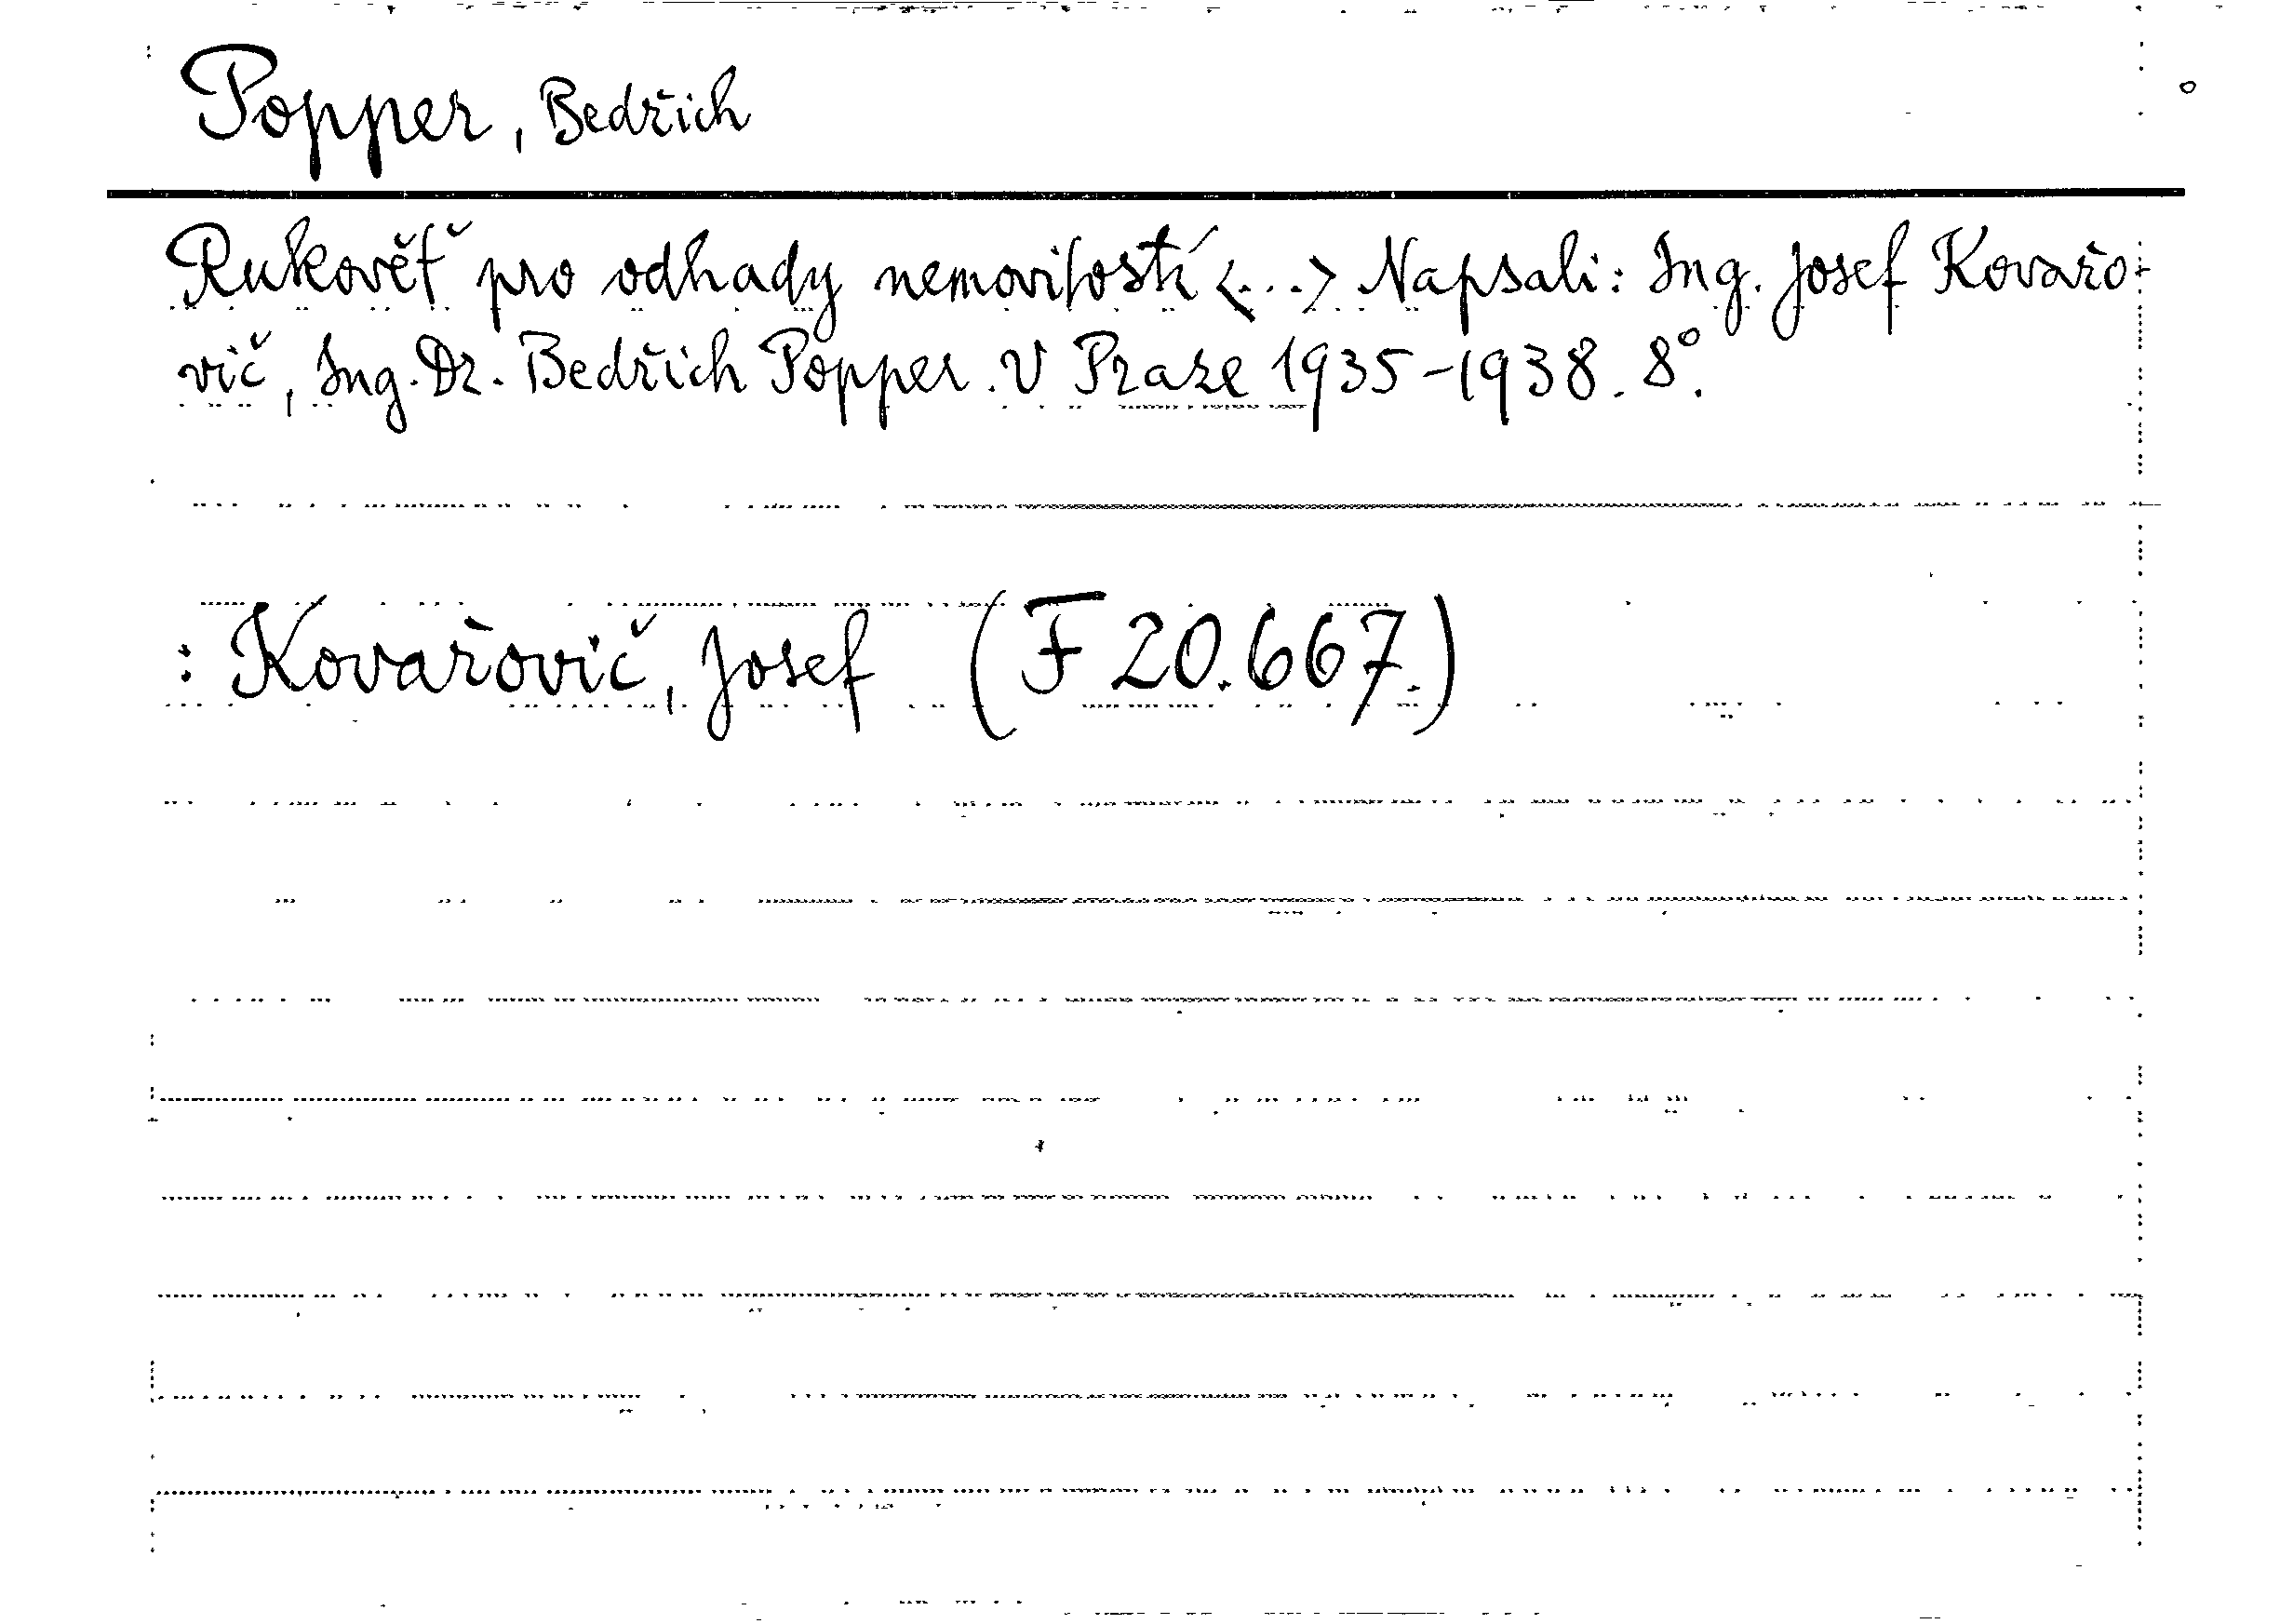 Popper, Bedřich
Rukověť pro odhady nemovitostí <...> Napsali: Ing. Josef Kovařo-
vič, Ing. Dr. Bedřich Popper. V Praze 1935-1938. 8°.
: Kovařovič, Josef (F 20.667.)